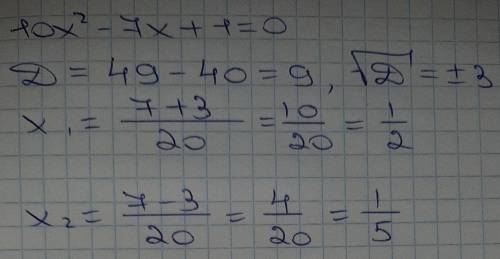 10x² - 7x + 1 = 0
D = 49 - 40 = 9, √D = ± 3
x₁ = (7 + 3)/20 = 10/20 = 1/2
x₂ = (7 - 3)/20 = 4/20 = 1/5